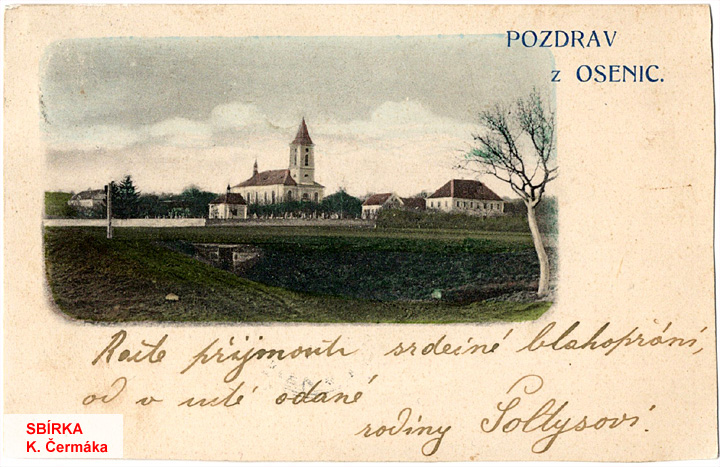 POZDRAV
z OSENIC.
Račte přijmouti srdečné blahopřání,
od v úctě oddané
rodiny Soltysovi.
SBÍRKA
K. Čermáka